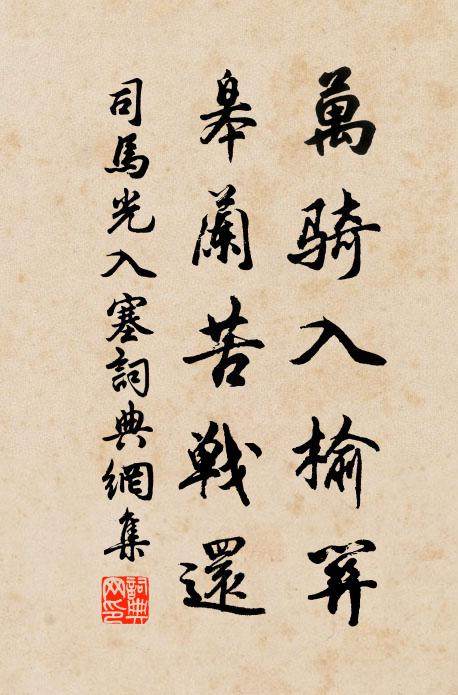 萬騎入榆關
皋蘭苦戰還
司馬光入塞詞典網集
詞典網印